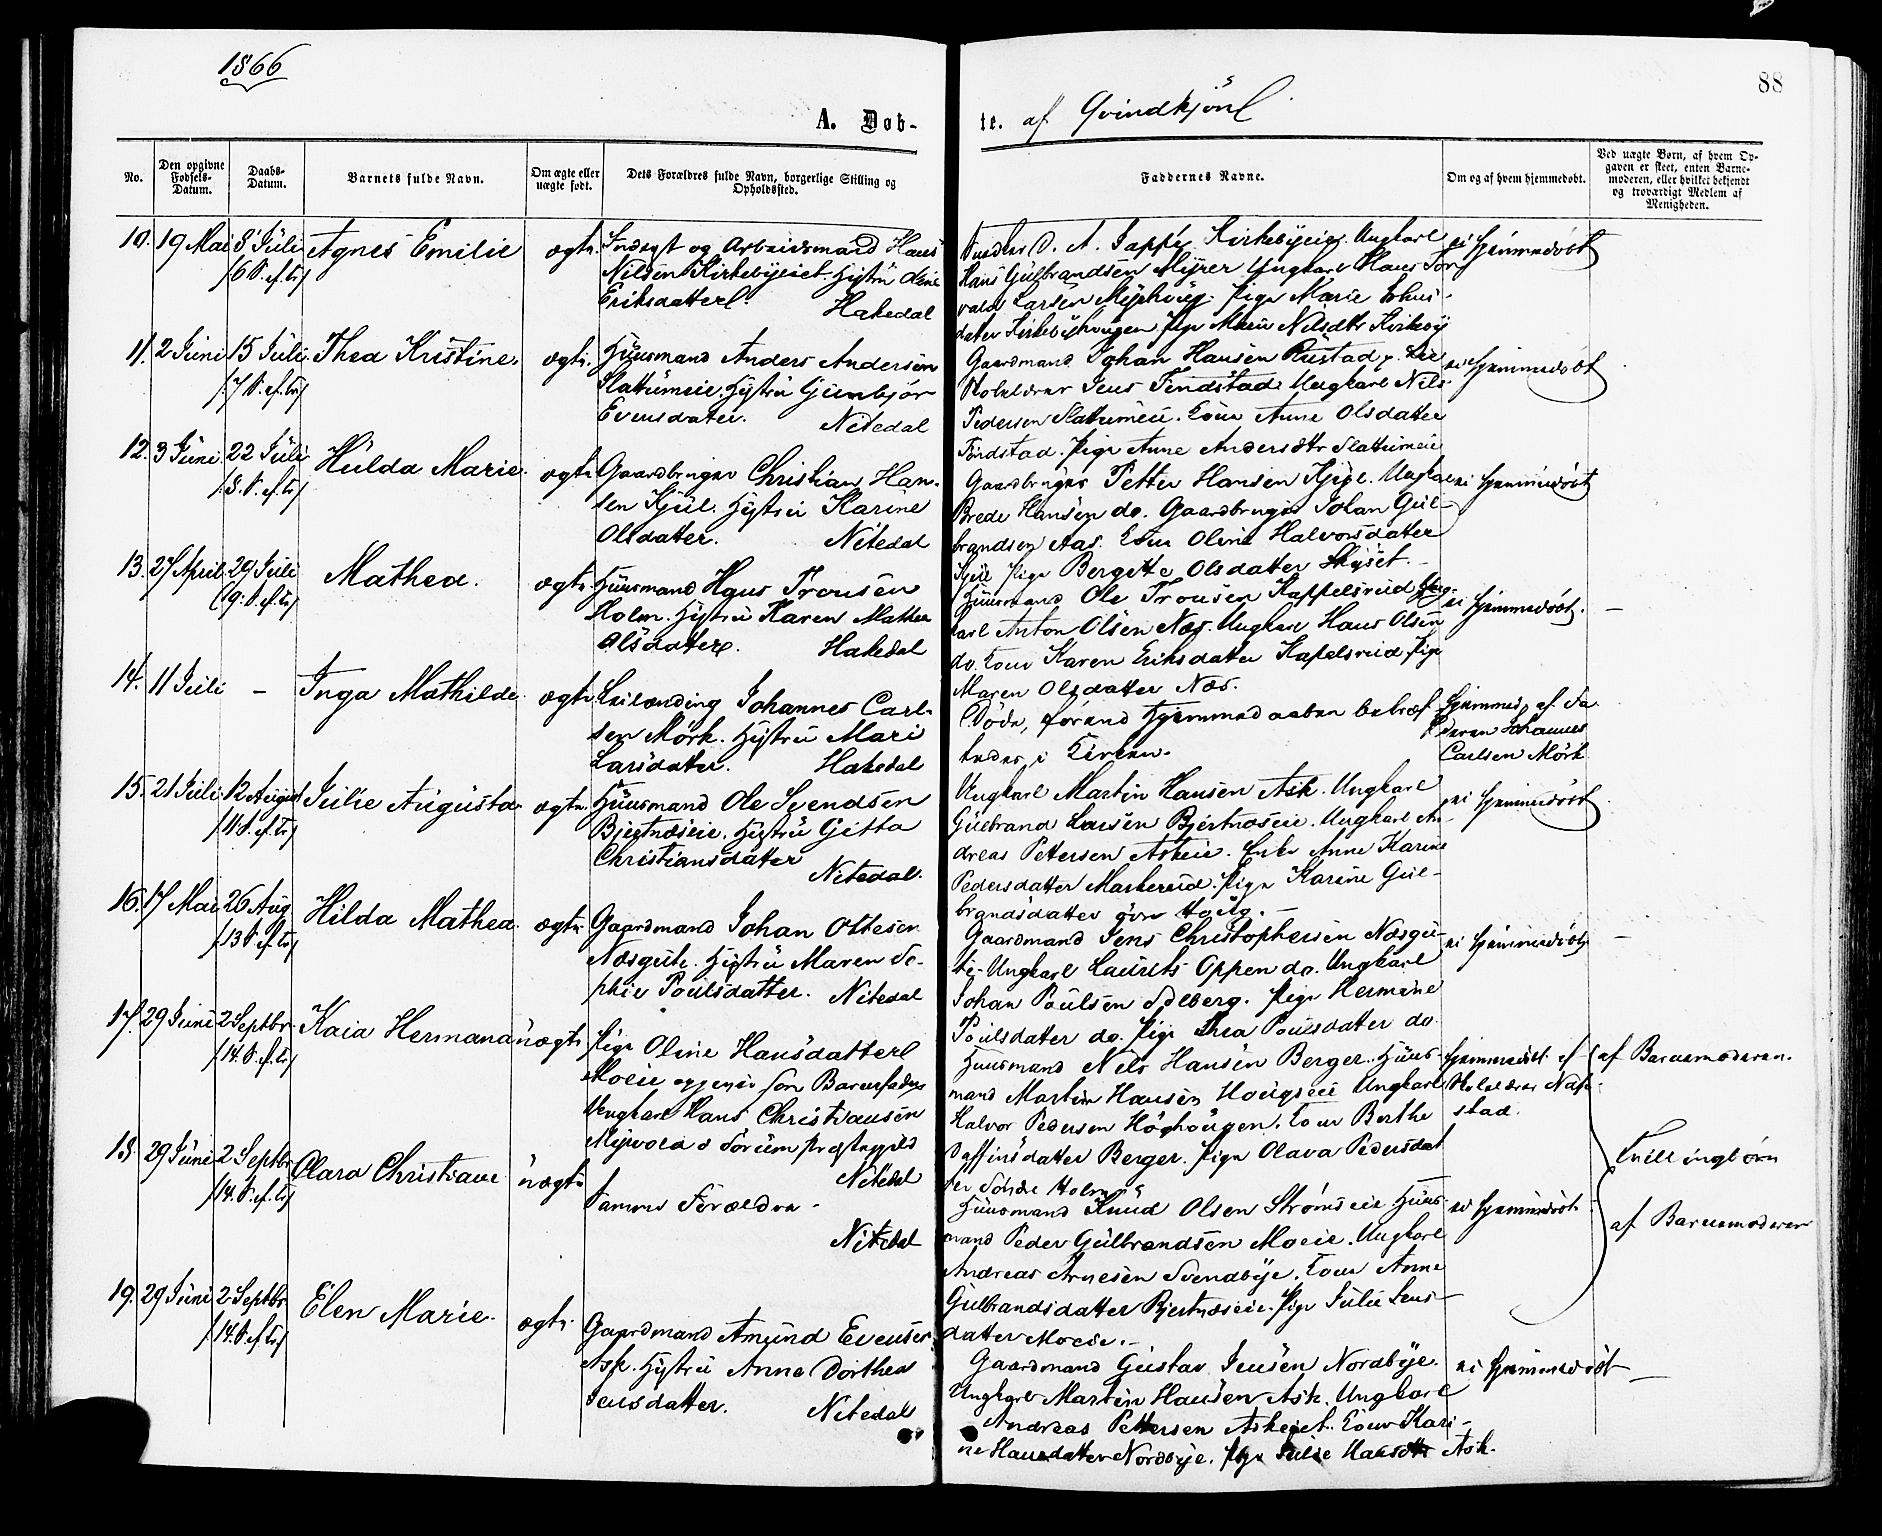 1866
88
A. Døb-
te. af Qvindkjön
No.
Den opgivne Fødsels-Datum.
Daabs-Datum.
Barnets fulde Navn.
Om ægte eller uægte født.
Dets Forældres fulde Navn, borgerlige Stilling og Opholdssted.
Faddernes Navne.
Om og af hvem hjemmedøbt.
Ved uægte Børn, af hvem Opgaven er skeet, enten Barnemoderen, eller hvilket bekjendt og troværdigt Medlem af Menigheden.
10. 19 Mai 8 Juli Agnes Emilie ægte Inderst og Arbeidsmand Hans
/6 S. ef. Tr/ Nilsen Kirkebyeiet Hystru Oline
Eriksdatter. Hakedal
Kirkebyeie, Ungkarl
Hans Gulbrandsen Myrer Ungkarl Hans Tor
vald Larsen Pige Marie Johns-
dater Kirkebyhougen Pige Nilsdtr Kirkeby
ei hjemmedöbt
11. 2 Juni 15 Juli Thea Kristine. ægte. Huusmand Anders Andersen
/7 S. ef. Tr/ Slattumeie. Hystru Gunbjør
Evensdater. Nitedal
Gaardmand Johan Hansen Rustad
Skolelærer Jens Tendstad. Ungkarl Nils
Pedersen Slatumeie. Kone Anne Olsdatter
Tendstad. Pige Anne Andersdtr Slattumeie
ei hjemmedöbt
12. 3 Juni. 22 Juli Hulda Marie. ægte Gaardbruger Christian Han-
/8. S. ef. Tr/ sen Kjul. Hystru Karine
Olsdatter. Nitedal
Gaardbruger Petter Hansen Kjul. Ungkarl
Brede Hansen do. Gaardbruger Johan Gul-
brandsen Aas. Kone Oline Halvorsdatter
Kjul Pige Bergitte Olsdatter Skyset.
ei hjemmedöbt
13. 27 April 29 Juli Mathea. ægte Huusmand Hans Tronsen
/9. S. ef. Tr/ Holm. Hystru Karen Mathea
Olsdatter. Hakedal
Huusmand Ole Tronsen Kappelsrud Ung-
karl Anton Olsen Næs. Ungkarl Hans Olsen
do. Kone Karen Eriksdatter Kapelsrud Pige
Maren Olsdatter Næs.
ei hjemmedöbt. -
14. 11 Juli - Inga Mathilde ægte Leilænding Johannes Carl-
sen Mörk. Hystru Mari
Larsdater. Hakedal
Døde, förend Hjemmedaaben bekræf-
tedes i Kirken.
Hjemmed. af Fa-
deren Johannes
Carlsen Mörk
15. 21 Juli 12 August Julie Augusta ægte. Huusmand Ole Svendsen
/11 S. ef. Tr/ Bjertnæseie. Hystru Gitta
Christiansdatter
Nitedal.
Ungkarl Martin Hansen Ask. Ungkarl
Gulbrand Larsen Bjertnæseie. Ungkarl An-
dreas Pettersen Askeie. Enke Anne Karine
Pedersdatter Markerud. Pige Karine Gul-
brandsdatter övre Houg. -
ei hjemmedöbt
16. 17 Mai 26 Aug Hilda Mathea. ægte Gaardmand Johan Ottesen
/13 S. ef. Tr/ Næsgute. Hystru Maren So-
phie Poulsdatter. Nitedal
Gaardmand Jens Christophersen Næsgu-
te. Ungkarl Laurits Oppen do. Ungkarl
Johan Poulsen Solberg. Pige Hermine
Poulsdatter do. Pige Thea Poulsdatter do.
ei hjemmedöbt -
17. 29 Juni 2 Septbr Kaia Hermana uægte Pige Oline Hansdatter
/14. S. ef. Tr/ Moeie opgiver som Barnefader
Ungkarl Hans Christiansen
Sörum Præstegjeld
Nitedal
Huusmand Nils Hansen Berger. Huus-
mand Martin Hansen Hougseie Ungkarl
Halvor Pedersen Höghougen. Kone Berthe
Daffinsdatter Berger. Pige Olava Pedersdat
ter Söndre Holm
hjemmedöbt. af
Skolelærer
stad.
af Barnemoderen.
18. 29 Juni 2 Septbr Clara Christiane uægte Samme Forældre -
/14. S. ef. Tr/
Nitedal
Huusmand Knud Olsen Strømseie Huus-
mand Peder Gulbrandsen Moeie. Ungkarl
Andreas Arnesen Svendbye. Kone Anne
Gulbrandsdatter Bjertnæseie. Pige Julie Jens-
datter Moeie. -
ei hjemmedöbt
Tvillingbörn
af Barnemoderen
19. 29 Juni 2 Septbr Elen Marie. ægte. Gaardmand Amund Evensen
/14. S. ef. Tr/ Ask. Hystru Anne Dorthea
Jensdatter. Nitedal
Gaardmand Gustav Jensen Nordbye.
Ungkarl Martin Hansen Ask. Ungkarl
Andreas Pettersen Askeiet. Kone Kari-
ne Hansdatter Nordbye. Pige Julie Hansdtr Ask.
ei hjemmedöbt -